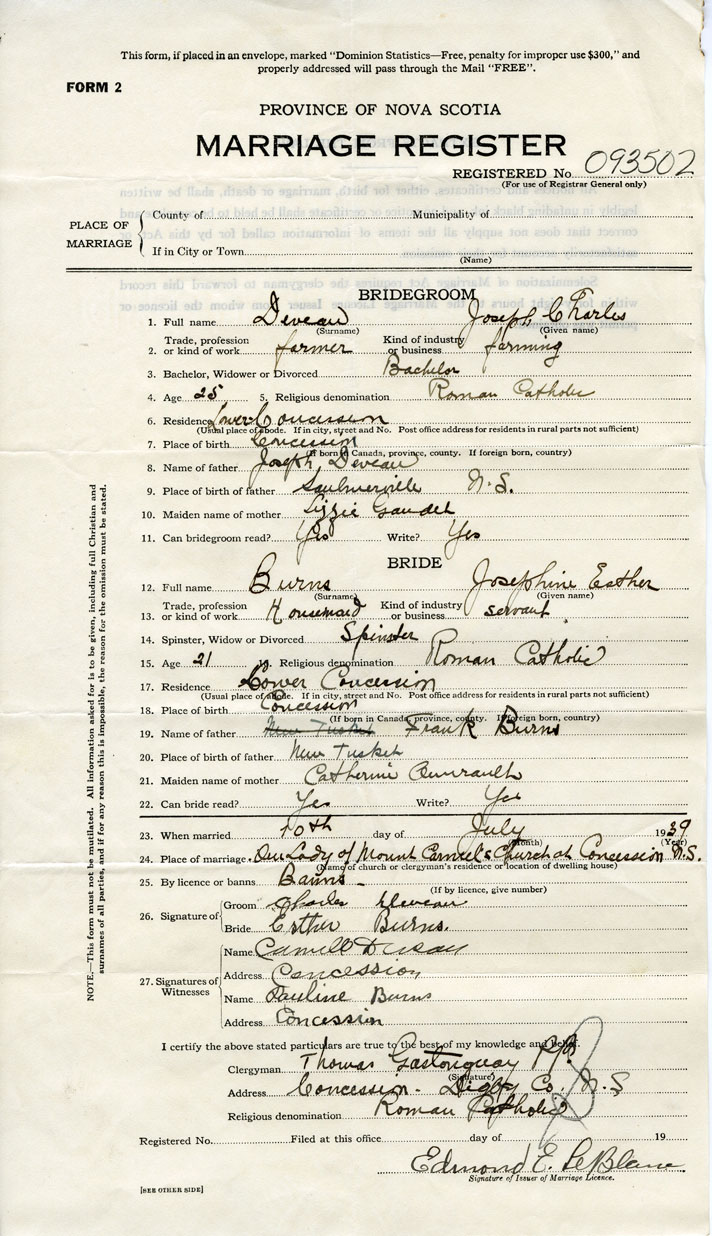 This form, if placed in an envelope, marked "Dominion Statistics—Free, penalty for improper use $300," and
properly addressed will pass through the Mail "FREE".
FORM 2
PROVINCE OF NOVA SCOTIA
MARRIAGE REGISTER
REGISTERED No. 093502
(For use of Registrar General only)
PLACE OF MARRIAGE
County of Municipality of
If in City or Town
(Name)
BRIDEGROOM
1. Full name Deveau Joseph Charles
(Surname) (Given name)
2. Trade, profession or kind of work farmer Kind of industry or business farming
3. Bachelor, Widower or Divorced Bachelor
4. Age 25 5. Religious denomination Roman Catholic
6. Residence Lower Concession
(Usual place of abode. If in city, street and No. Post office address for residents in rural parts not sufficient)
7. Place of birth Concession
(If born in Canada, province, county. If foreign born, country)
8. Name of father Joseph Deveau
9. Place of birth of father Saulnierville N.S.
10. Maiden name of mother Lizzie Gaudet
11. Can bridegroom read? Yes Write? Yes
BRIDE
12. Full name Burns Josephine Esther
(Surname) (Given name)
13. Trade, profession or kind of work Housemaid Kind of industry or business servant
14. Spinster, Widow or Divorced Spinster
15. Age 21 Religious denomination Roman Catholic
17. Residence Lower Concession
(Usual place of abode. If in city, street and No. Post office address for residents in rural parts not sufficient)
18. Place of birth Concession
(If born in Canada, province, county. If foreign born, country)
19. Name of father New Tusket Frank Burns
20. Place of birth of father New Tusket
21. Maiden name of mother Catherine
22. Can bride read? Yes Write? Yes
23. When married 10th day of July 1939
(Month) (Year)
24. Place of marriage Our Lady of Mount Carmel's Church at Concession N.S.
(Name of church or clergyman's residence or location of dwelling house)
25. By licence or banns Banns
(If by licence, give number)
26. Signature of
Groom Charles Deveau
Bride Esther Burns.
27. Signatures of Witnesses
Name
Address Concession
Name Pauline Burns
Address Concession
I certify the above stated particulars are true to the best of my knowledge and belief.
Clergyman Thomas Gastonguay P.P.
(Signature)
Address Concession - Digby Co. N.S
Religious denomination Roman Catholic
Registered No. Filed at this office day of 19
Edmond E. LeBlanc
Signature of Issuer of Marriage Licence.
[SEE OTHER SIDE]
NOTE.—This form must not be mutilated. All information asked for is to be given, including full Christian and
surnames of all parties, and if for any reason this is impossible, the reason for the omission must be stated.